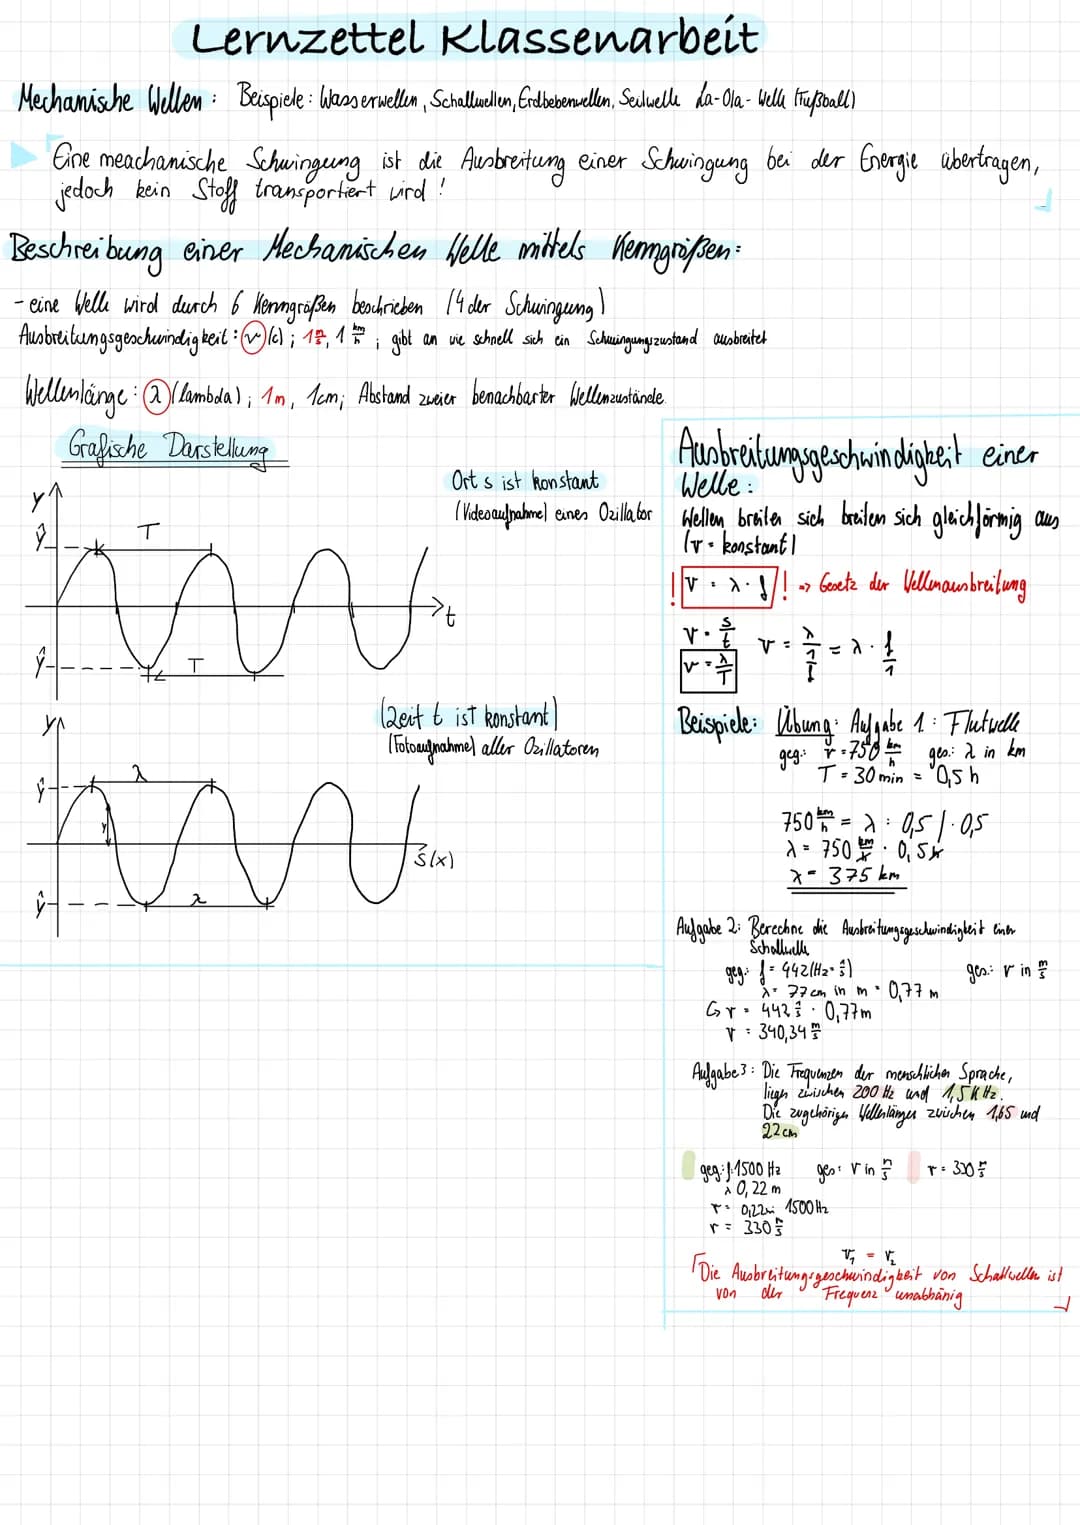 Lernzettel Klassenarbeit
Mechanische Wellen: Beispiele: Wasserwellen, Schallwellen, Erdbebenwellen, Seilwelle La-Ola-Welle (Fußball)
Eine meachanische Schwingung ist die Ausbreitung einer Schwingung bei der Energie übertragen,
jedoch kein Stoff transportiert wird!
Beschreibung einer Mechanischen Welle mittels Kenngrößen:
- eine Welle wird durch 6 Kenngrößen beschrieben (4 der Schwingung)
Ausbreitungsgeschwindigkeit: v (c); 1 m/s, 1 km/h; gibt an wie schnell sich ein Schwingungszustand ausbreitet
Wellenlänge: λ (lambda); 1m, 1cm; Abstand zweier benachbarter Wellenzustände.
Grafische Darstellung
Ort s ist konstant
(Videoaufnahme) eines Ozillator
y
ŷ
T
t
ŷ
T
(Zeit t ist konstant)
(Fotoaufnahme) aller Ozillatoren
y
ŷ
λ
y
s(x)
ŷ
λ
Ausbreitungsgeschwindigkeit einer
Welle:
Wellen breiten sich breiten sich gleichförmig aus
(v = konstant)
! v = λ · f ! => Gesetz der Wellenausbreitung
v = s/t v = λ/(1/f) = λ · f/1
v = λ/T
Beispiele: Übung: Aufgabe 1: Flutwelle
geg.: v = 750 km/h ges.: λ in km
T = 30 min = 0,5 h
750 km/h = λ : 0,5 / · 0,5
λ = 750 km/h · 0,5h
λ = 375 km
Aufgabe 2: Berechne die Ausbreitungsgeschwindigkeit einer
Schallwelle
geg.: f = 442 (Hz = 1/s) ges.: v in m/s
λ = 77 cm in m = 0,77 m
↳ v = 442 1/s · 0,77m
v = 340,34 m/s
Aufgabe 3: Die Frequenzen der menschlichen Sprache,
liegen zwischen 200 Hz und 1,5 KHz.
Die zugehörigen Wellenlängen zwischen 1,65 und
22 cm
geg: f: 1500 Hz ges: v in m/s v = 330 m/s
λ 0,22 m
v = 0,22m · 1500 Hz
v = 330 m/s
v₁ = v₂
Die Ausbreitungsgeschwindigkeit von Schallwellen ist
von der Frequenz unabhänig